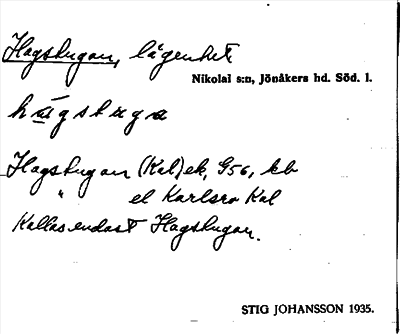 Hagstugan, lägenhet
Nikolai s:n, Jönåkers hd. Söd. l.
hágstuga
Hagstugan (Kal) ek, G56, kb
" el Karlsro Kal
Kallas endast Hagstugan.
STIG JOHANSSON 1935.